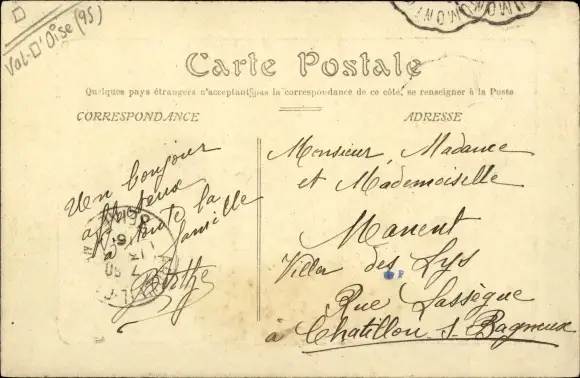 D
Val-D'Oise (95)
Carte Postale
Quelques pays étrangers n'acceptant pas la correspondance de ce côté, se renseigner à la Poste
CORRESPONDANCE
ADRESSE
Un bonjour
affectueux
à toute la
famille
Berthe
Monsieur, Madame
et Mademoiselle
Manent
Villa des Lys
P
Rue Lassègue
à Chatillon-s-Bagneux